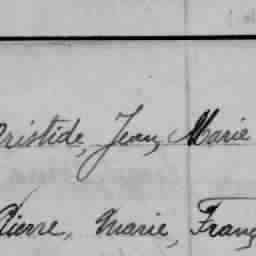 Aristide, Jean, Marie
Pierre, Marie, Franç